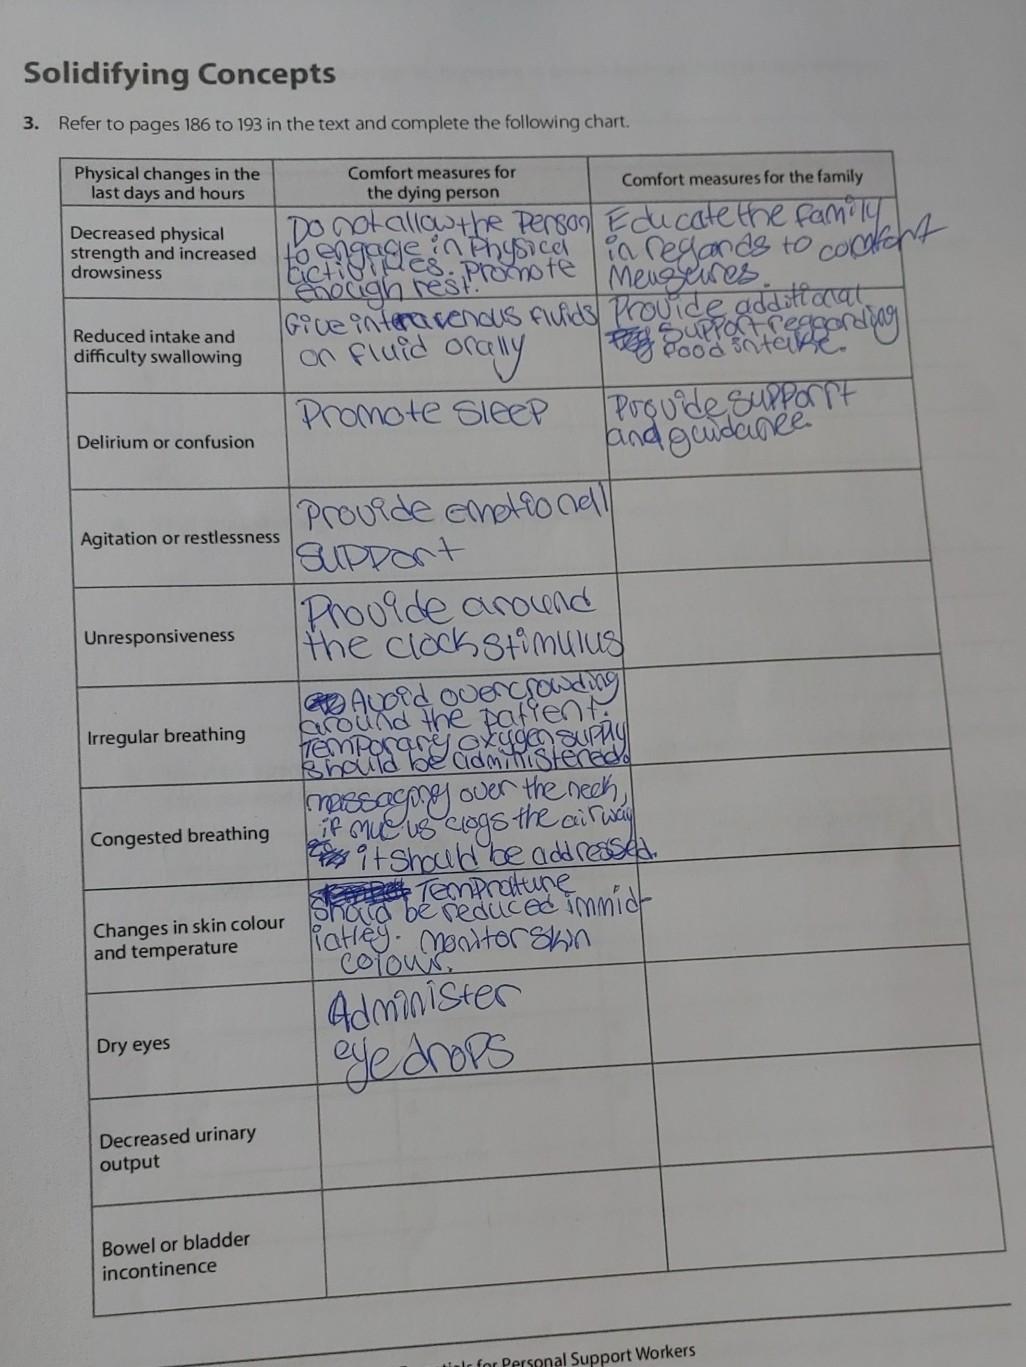 Solidifying Concepts
3. Refer to pages 186 to 193 in the text and complete the following chart.
Physical changes in the
last days and hours
Comfort measures for
the dying person
Comfort measures for the family
Decreased physical
strength and increased
drowsiness
Do not allow the Person
to engage in Physical
activities. Promote
enough rest.
Educate the family
in regards to comfort
Measures.
Reduced intake and
difficulty swallowing
Give intravenous fluids
or fluid orally
Provide additional
support reggarding
food intake.
Delirium or confusion
Promote sleep
Provide supporrt
and guidance.
Agitation or restlessness
Provide emotional
support
Unresponsiveness
Provide around
the clock stimulus
Irregular breathing
Avoid overcrowding
around the patient.
Temporary oxygen supply
should be administered.
Congested breathing
massaging over the neck,
if mucus clogs the airway
it should be addressed.
Changes in skin colour
and temperature
Temprature
should be reduced immid-
iatley. Monitor skin
colour.
Dry eyes
Administer
eye drops
Decreased urinary
output
Bowel or bladder
incontinence
for Personal Support Workers